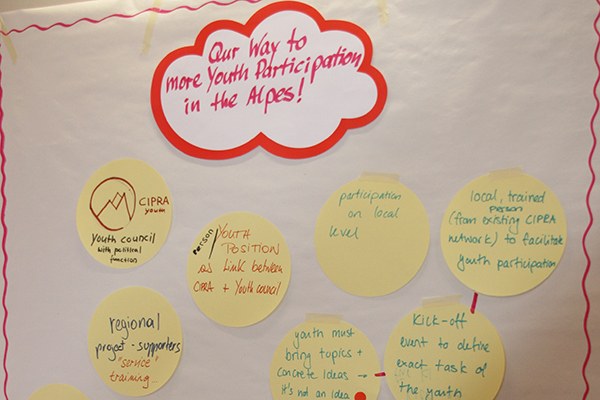 Our Way to
more Youth Participation
in the Alpes!
CIPRA
youth
Youth council
with political
function
person/YOUTH
POSITION
as Link between
CIPRA + Youth council
participation
on local
level
local, trained
person
(from existing CIPRA
network) to facilitate
youth participation
regional
project-supporters
"service"
training...
youth must
bring topics +
concrete ideas →
It's not an idea
Kick-off
event to define
exact task of
the youth